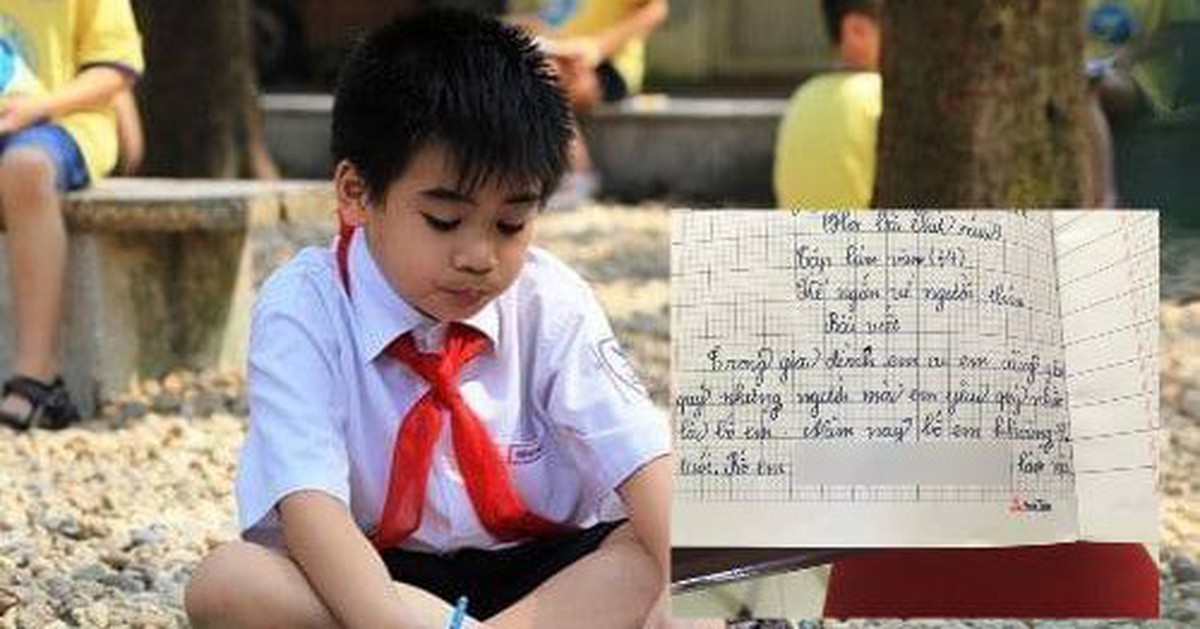 Tập làm văn (34)
Kể ngắn về người thân.
Bài viết
Trong gia đình em ai em cũng yêu
quý nhưng người mà em yêu quý nhất
là bố em. Năm nay bố em khoảng
tuổi. Bố em làm